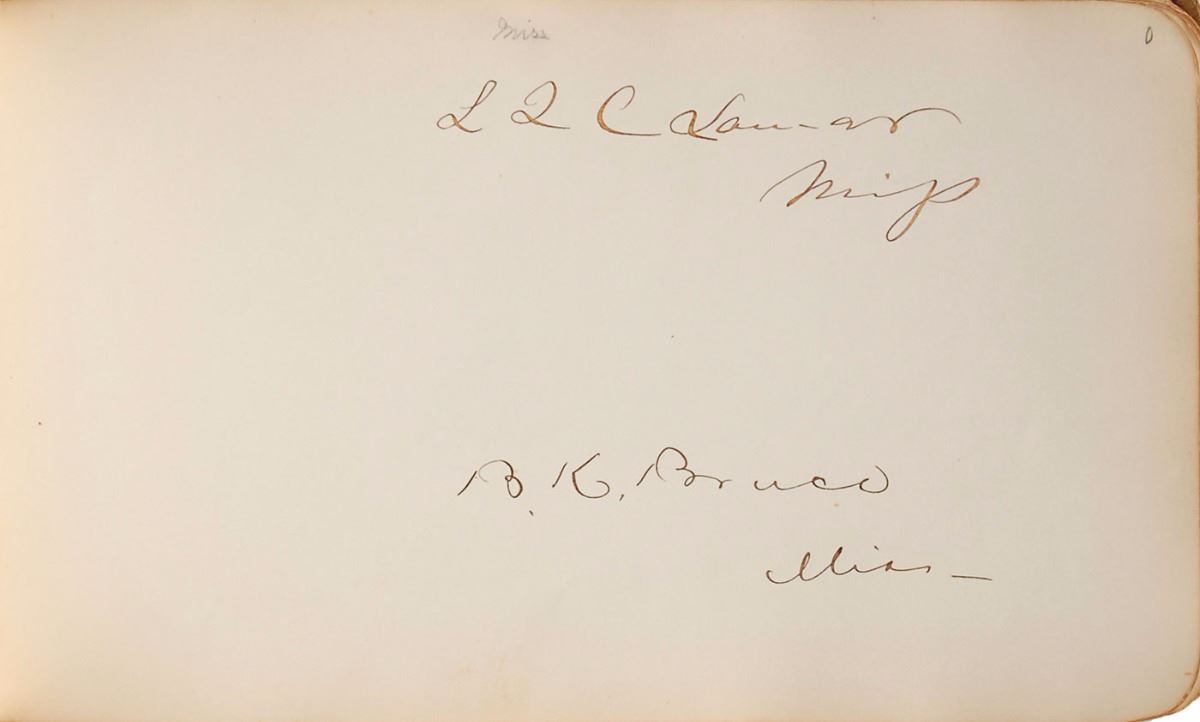 Miss
L Q C Lamar
Miss
B. K. Bruce
Miss —
0